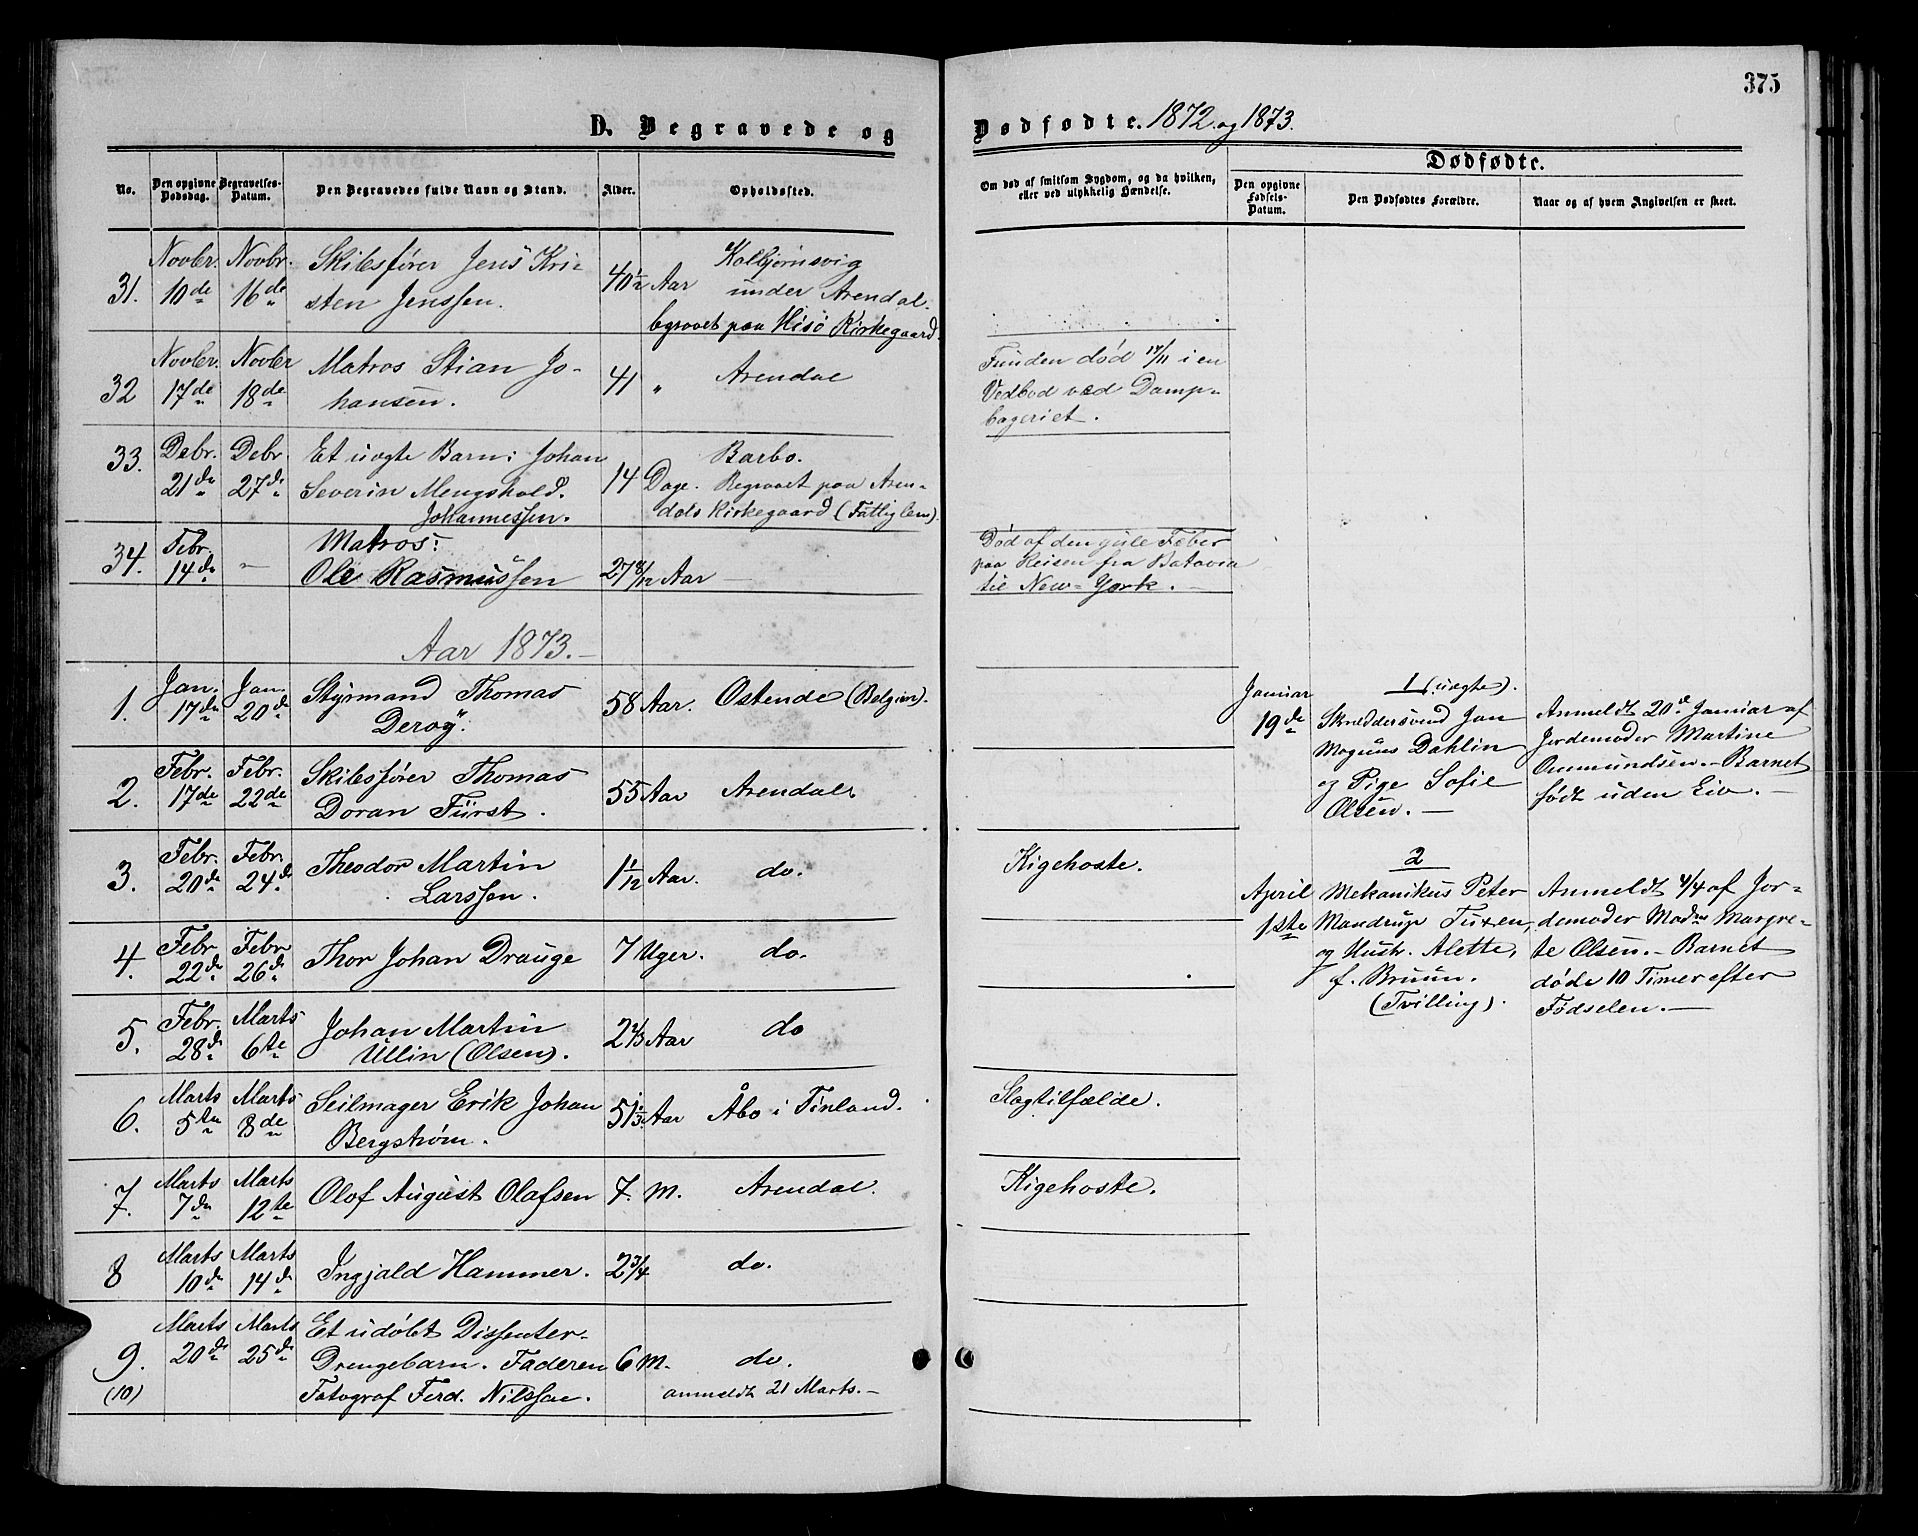 375
D. Begravede og Dødfødte. 1872 og 1873.
No.
Den opgivne Dødsdag.
Begravelses-Datum.
Den Begravedes fulde Navn og Stand.
Alder.
Opholdssted.
Om død af smitsom Sygdom, og da hvilken,
eller ved ulykkelig Hændelse.
Dødfødte.
Den opgivne Fødsels-Datum.
Den Dødfødtes Forældre.
Naar og af hvem Angivelsen er skeet.
31. Novbr. 10de Novbr. 16de Skibsfører Jens Kri-
sten Jenssen. 40½ Aar Kolbjørnsvig
under Arendal.
begravet paa Hisö Kirkegaard.
32 Novbr. 17de Novbr 18de Matros Stian Jo-
hansen. 41 " Arendal
Funden død 17/11 i en
Vedbod ved Damp-
bageriet.
33. Debr. 21de Debr. 27de Et uægte Barn: Johan
Severin Mengshold.
Johannessen. 14 Dage. Barbo.
Begravet paa Aren-
dals Kirkegaard (Fattiglem).
34. Febr. 14de — Matros:
Ole Rasmussen 27 8/12 Aar —
Død af den gule Feber
paa Reisen fra Batavia
til New-York. —
Aar 1873. —
1. Jan. 17de Jan. 20de Styrmand Thomas
Deroy. 58 Aar. Ostende (Belgien).
2. Febr. 17de Febr. 22de Skibsfører Thomas
Doran Fürst. 55 Aar Arendal.
3. Febr. 20de Febr. 24de Theodor Martin
Larssen. 1 1/12 Aar. do. Kighoste.
4. Febr. 22de Febr 26de Thor Johan Drauge 7 Uger. do.
5. Febr. 28de Marts 6te Johan Martin
Ullin (Olsen). 2 2/3 Aar do
6. Marts 5te Marts 8de Seilmager Erik Johan
Bergstrøm. 51 1/3 Aar Åbo i Finland. Slagtilfælde.
7. Marts 7de Marts 12te Olof August Olafsen 7. M. Arendal. Kighoste.
8 Marts 10de Marts 14de Ingjald Hammer. 2 3/4 do.
9. (10) Marts 20de Marts 25de Et udøbt Dissenter-
Drengebarn. Faderen
Fotograf Ferd. Nilssen. 6 M. do.
anmeldt 21 Marts. —
Januar 19de
1 (uægte).
Skræddersvend Jan
Magnus Dahlin
og Pige Sofie
Olsen. —
Anmeldt 20de Januar af
Jordemoder Martine
Ommundsen. — Barnet
født uden Liv. —
April 1ste
2
Mekanikus Peter
Mandrup Tuxen,
og Hustr. Alette,
f. Bruun.
(Tvilling).
Anmeldt 4/4 af Jor-
demoder Madm Margre-
te Olsen. — Barnet
døde 10 Timer efter
Fødselen. —